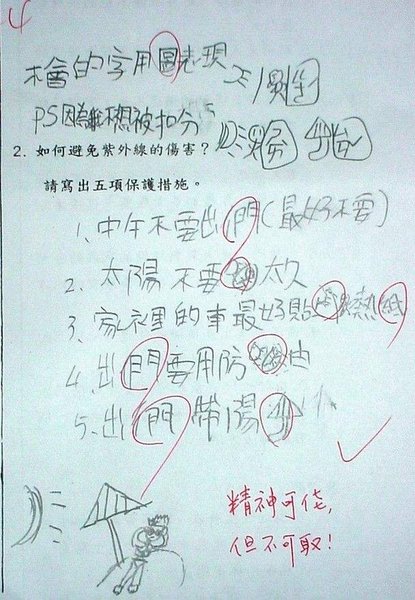 4
不會的字用圖表現
PS因為不想被扣分
2. 如何避免紫外線的傷害？
請寫出五項保護措施。
1、中午不要出門(最好不要)
2、太陽不要太久
3、家裡的車最好貼熱紙
4、出門要用防油
5、出門帶陽
精神可佳,
但不可取!